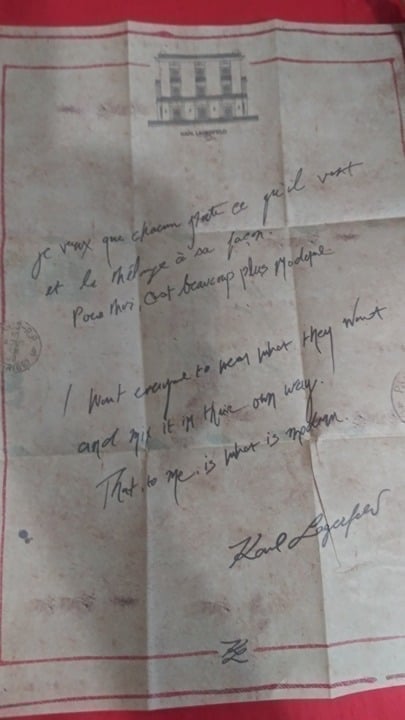 KARL LAGERFELD
je veux que chacun porte ce qu'il veut
et le mélange à sa façon.
Pour moi, c'est beaucoup plus moderne
I want everyone to wear what they want
and mix it in their own way.
That, to me, is what is modern.
Karl Lagerfeld
KL